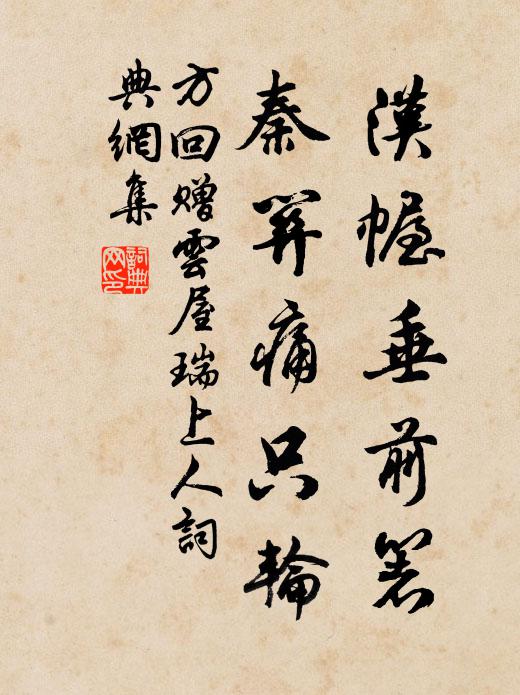 漢幄垂前箸
秦筭痛只輪
方回贈雲屋瑞上人詞
典網集
詞典
网印